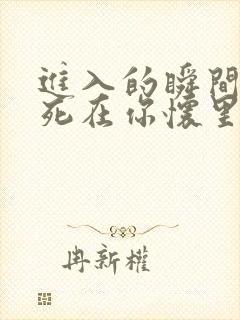 进入的瞬間
死在你懷里
冉新權